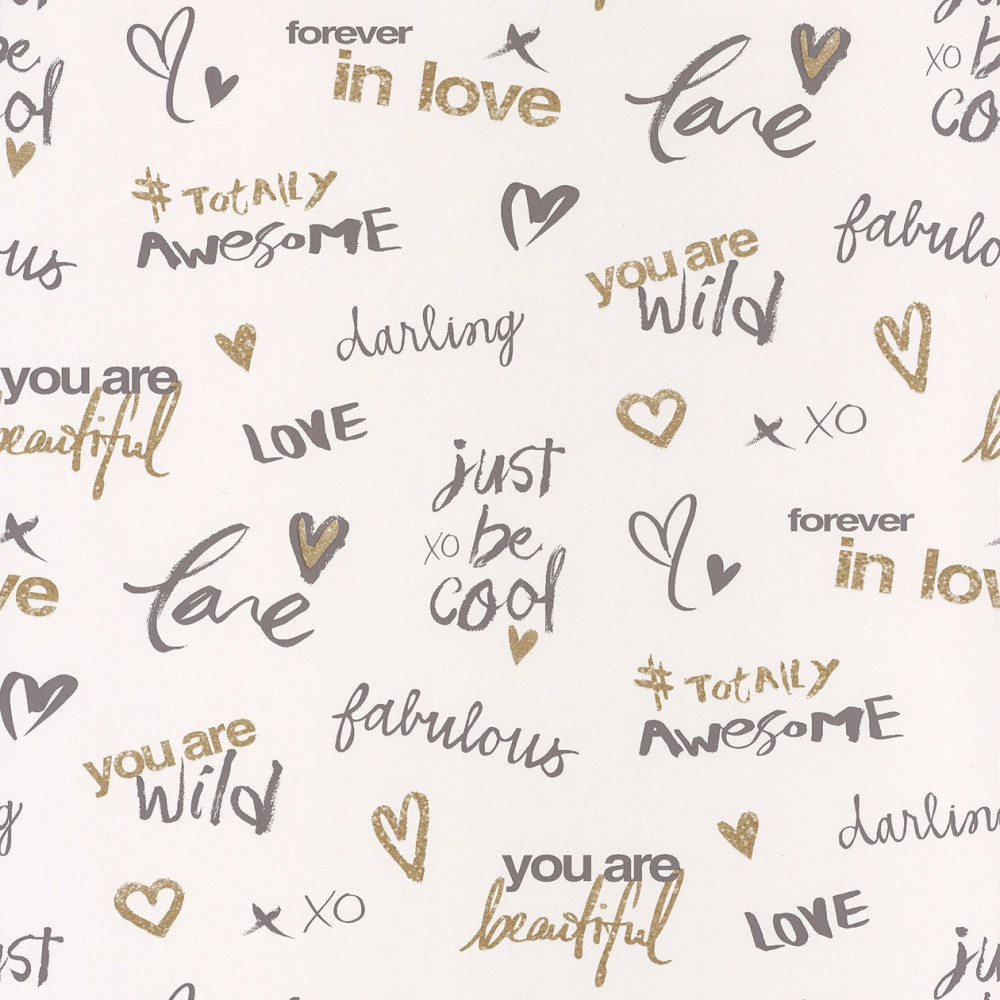 be
cool
forever
in love
love
xo be
co
# TotAlly
AWESOME
us
you are
wild
fabulo
darling
you are
beautiful
LOVE
x XO
b
just
xo be
cool
ve
love
forever
in lov
# TotAlly
AWESOME
fabulous
you are
wild
g
darling
you are
beautiful
x XO
LOVE
st
ju